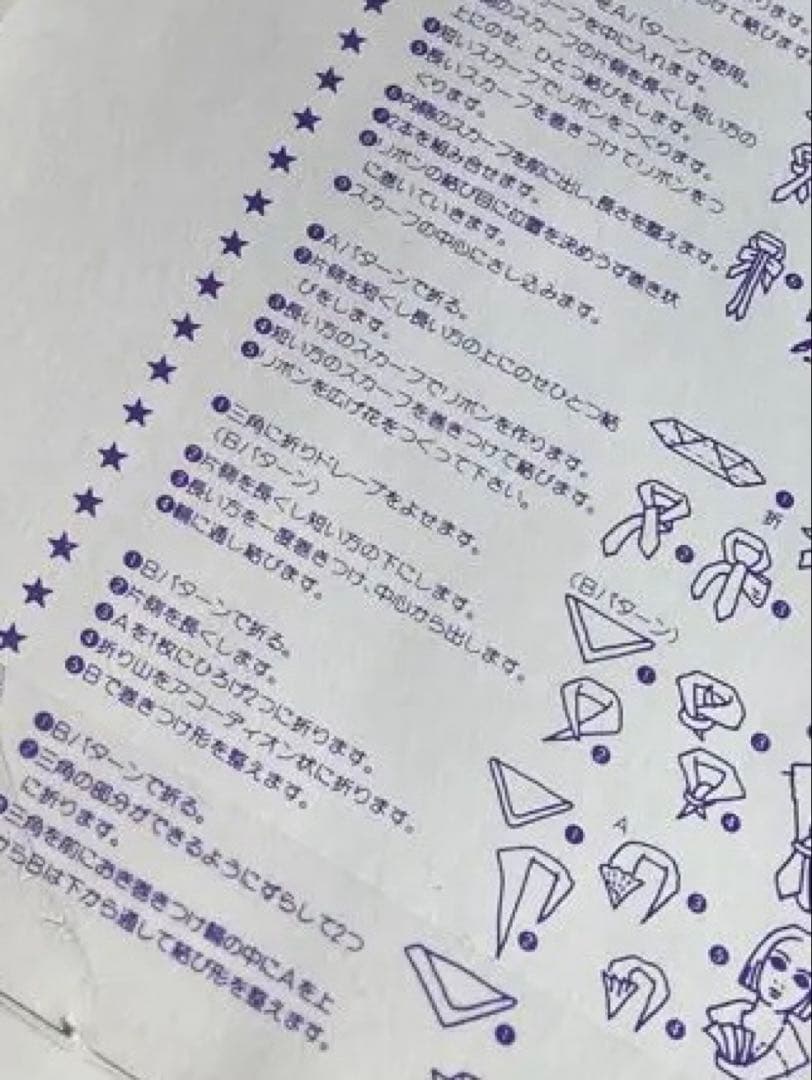 Aパターンで使用。
て結びます。
ーフを中に入れます。
のスカーフの片側を長くし短い方の
上にのせ、ひとつ結びをします。
❹短いスカーフでリボンをつくります。
❺長いスカーフを巻きつけてリボンをつ
くります。
❻内側のスカーフを前に出し、長さを整えます。
❼2本を組み合せます。
❽リボンの結び目に位置を決めうず巻き状
に巻いていきます。
❾スカーフの中心にさし込みます。
❶Aパターンで折る。
❷片側を短くし長い方の上にのせひとつ結
びをします。
❸長い方のスカーフでリボンを作ります。
❹短い方のスカーフを巻きつけて結びます。
❺リボンを広げ花をつくって下さい。
❶三角に折りドレープをよせます。
(Bパターン)
❷片側を長くし短い方の下にします。
❸長い方を一度巻きつけ、中心から出します。
❹輪に通し結びます。
❶Bパターンで折る。
❷片側を長くします。
❸Aを1枚にひろげ2つに折ります。
❹折り山をアコーディオン状に折ります。
❺Bで巻きつけ形を整えます。
❶Bパターンで折る。
❷三角の部分ができるようにずらして2つ
に折ります。
三角を前におき巻きつけ輪の中にAを上
からBは下から通して結び形を整えます。
❻
❶
折
❷
❸
(Bパターン)
❶
❷
❸
❹
❶
A
❷
❸
❹
❺
❶